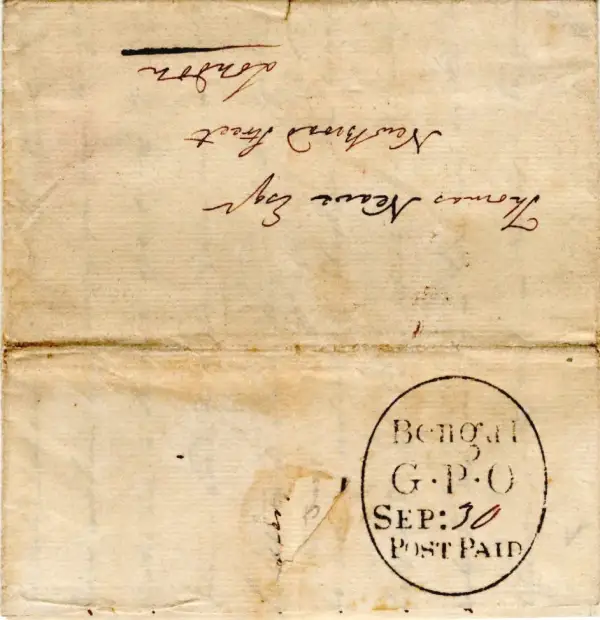 Thomas Neave Esqr
New Broad Street
London
Bengal
G·P·O
SEP: 30
POST PAID